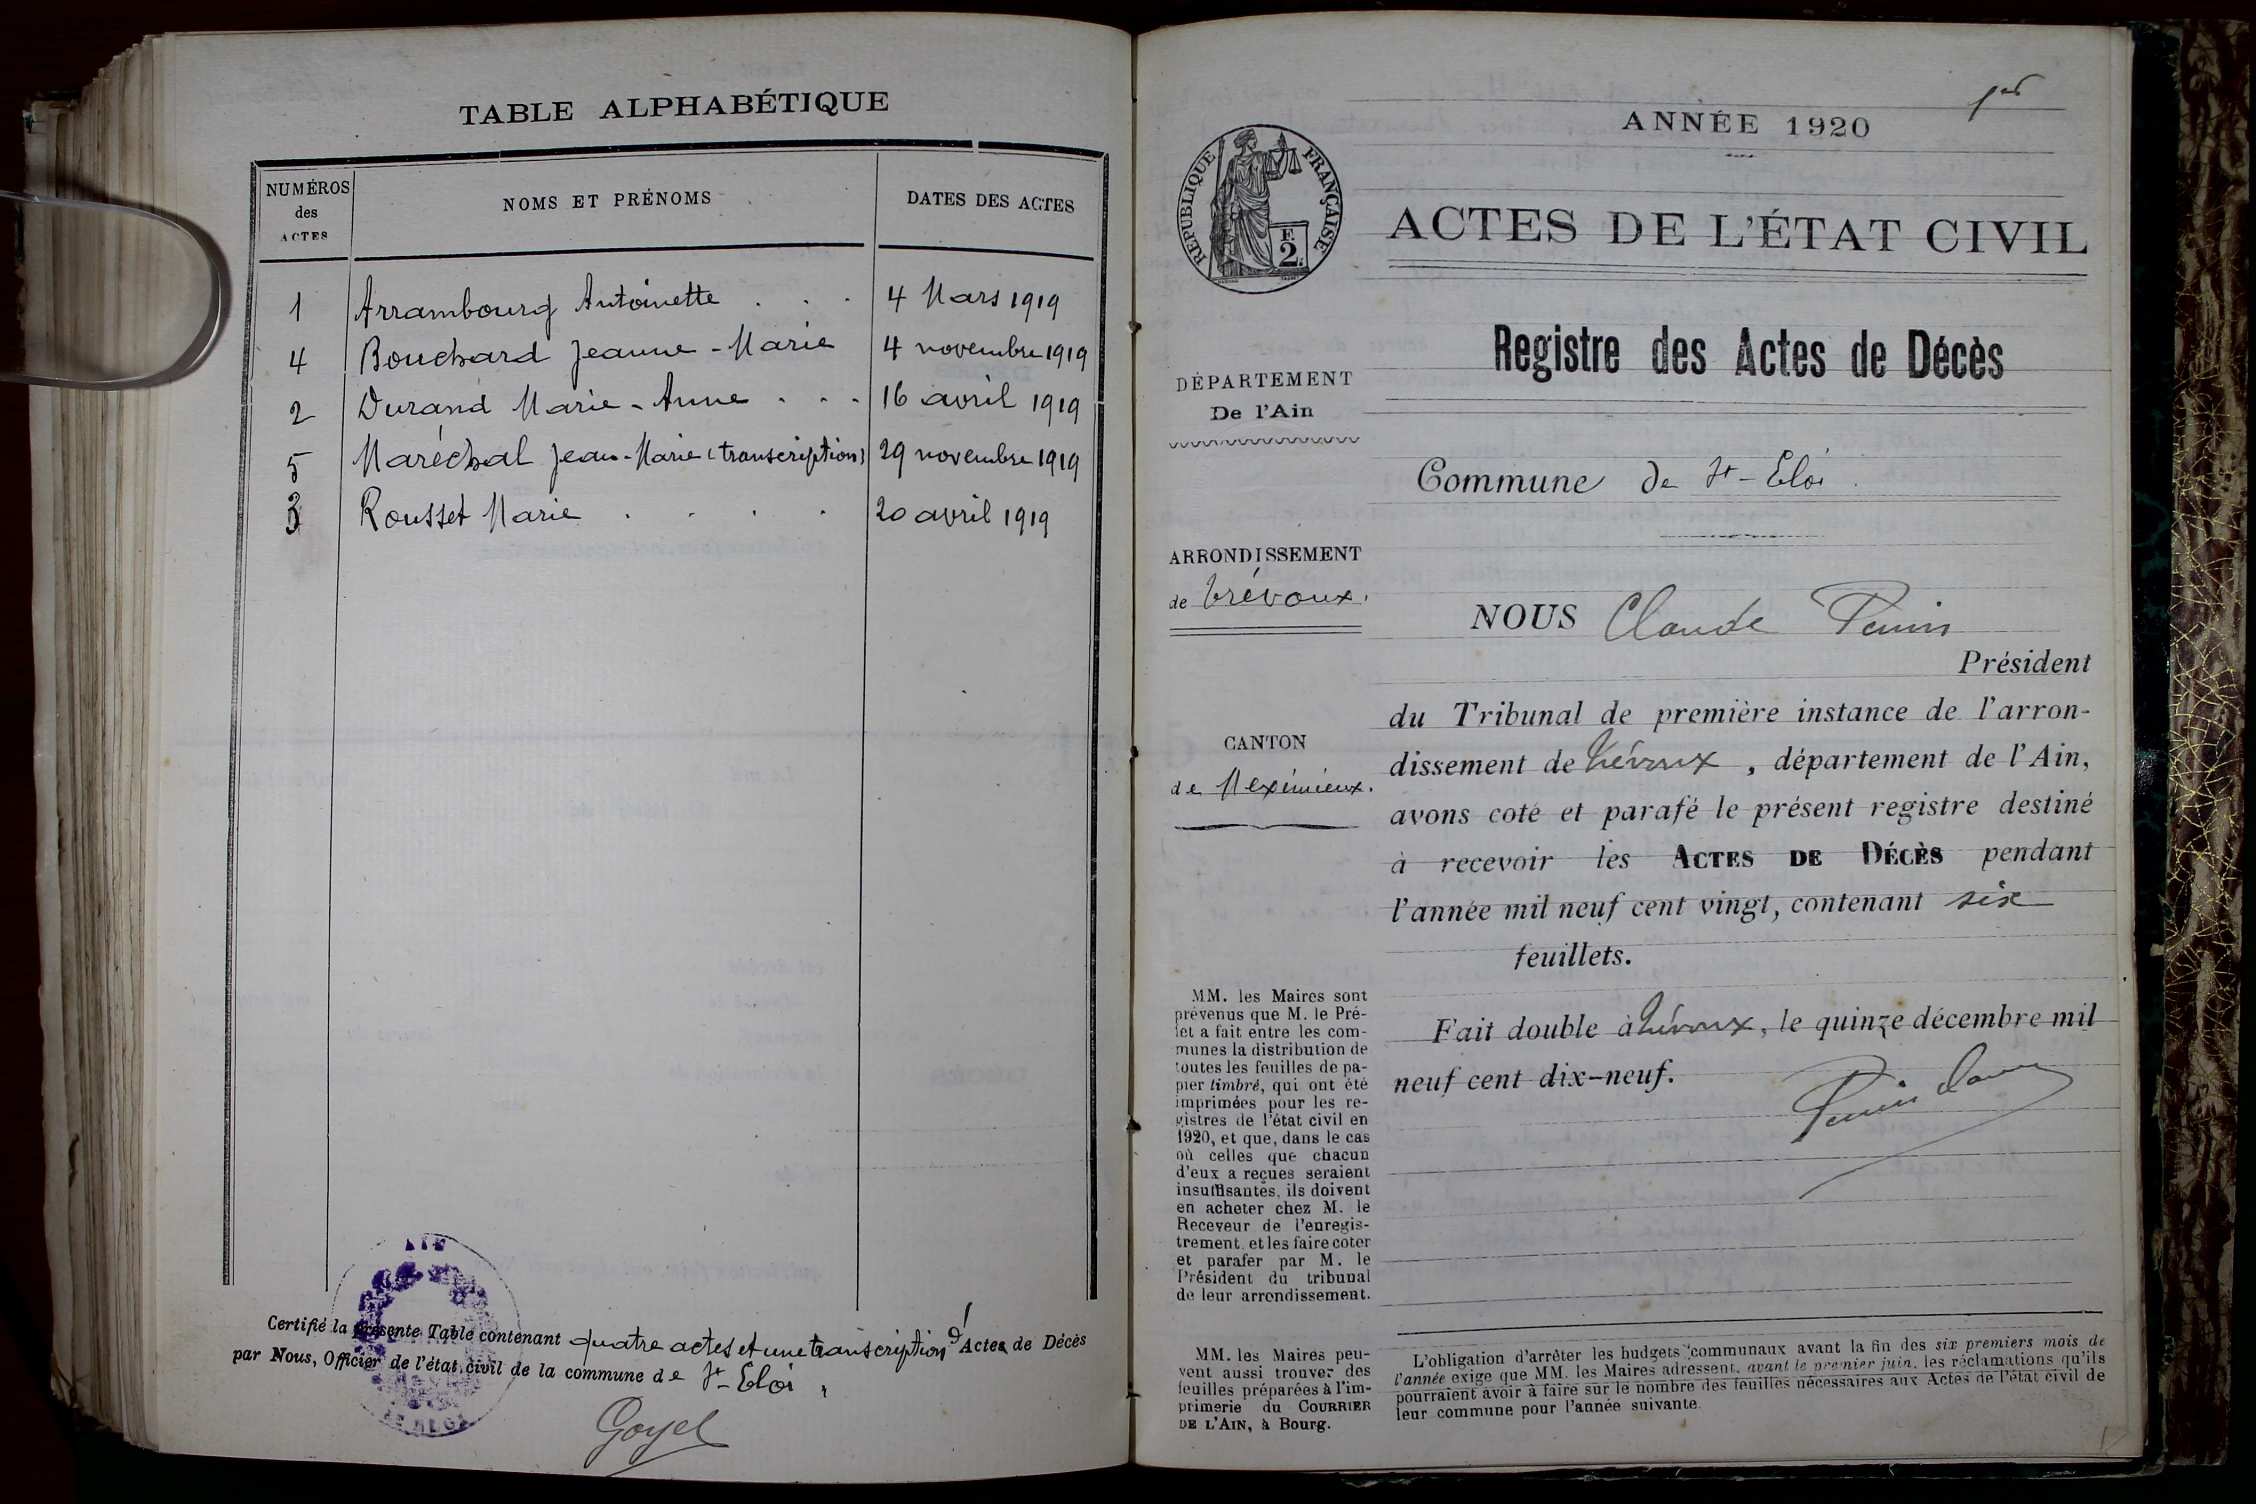 TABLE ALPHABÉTIQUE
NUMÉROS
des
ACTES
NOMS ET PRÉNOMS
DATES DES ACTES
1 Arrambourg Antoinette . . . 4 Mars 1919
4 Bouchard Jeanne-Marie 4 novembre 1919
2 Durand Marie-Anne . . . 16 avril 1919
5 Maréchal Jean-Marie (transcription) 29 novembre 1919
3 Rousset Marie . . . . 20 avril 1919
Certifié la présente Table contenant quatre actes et une transcription d'Actes de Décès
par Nous, Officier de l'état civil de la commune de St-Eloi,
Goyet
ANNÉE 1920
RÉPUBLIQUE FRANÇAISE
E
2
ACTES DE L'ÉTAT CIVIL
Registre des Actes de Décès
DÉPARTEMENT
De l'Ain
Commune de St-Eloi.
ARRONDISSEMENT
de Trévoux.
CANTON
de Meximieux.
NOUS Claude
Président
du Tribunal de première instance de l'arron-
dissement de Trévoux, département de l'Ain,
avons coté et parafé le présent registre destiné
à recevoir les ACTES DE DÉCÈS pendant
l'année mil neuf cent vingt, contenant six
feuillets.
Fait double à Trévoux, le quinze décembre mil
neuf cent dix-neuf.
MM. les Maires sont
prévenus que M. le Pré-
fet a fait entre les com-
munes la distribution de
toutes les feuilles de pa-
pier timbré, qui ont été
imprimées pour les re-
gistres de l'état civil en
1920, et que, dans le cas
où celles que chacun
d'eux a reçues seraient
insuffisantes, ils doivent
en acheter chez M. le
Receveur de l'enregis-
trement, et les faire coter
et parafer par M. le
Président du tribunal
de leur arrondissement.
MM. les Maires peu-
vent aussi trouver des
feuilles préparées à l'im-
primerie du COURRIER
DE L'AIN, à Bourg.
L'obligation d'arrêter les budgets communaux avant la fin des six premiers mois de
l'année exige que MM. les Maires adressent, avant le premier juin, les réclamations qu'ils
pourraient avoir à faire sur le nombre des feuilles nécessaires aux Actes de l'état civil de
leur commune pour l'année suivante.